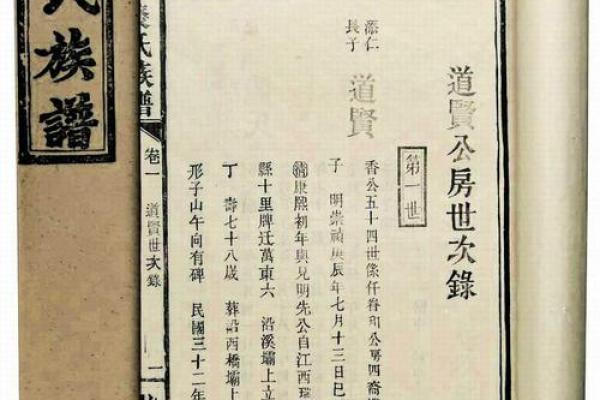 道賢公房世次錄
第一世
添仁
長子
道賢
香公五十四世係仟眷和公房四裔
子 明崇禎庚辰年七月十三日巳
清康熙初年與兄明先公自江西瑞
縣十里牌迁萬東六 沿溪壩上立
丁 壽七十八歲 葬沿西橋壩上
形子山午向有碑 民國三十二年
氏族譜
卷一
道賢世次錄
二
氏族譜